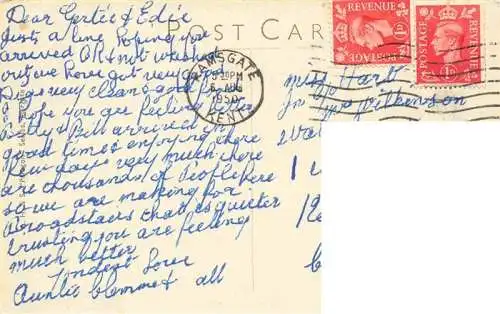 POST CARD
Dear Gertie & Edie
Just a line hoping you
arrived O.K & not washed
out, we have got very good
Digs very clean & good food
hope you are feeling
Betty & Bill arrived in
good time & enjoying there
few days very much there
are thousands of people here
so we are making for
Broadstairs that is quieter
trusting you are feeling
much better
Fondest Love
Auntie & all
RAMSGATE
PM
6 AUG
1950
KENT
REVENUE
POSTAGE
1D
POSTAGE
REVENUE
1D
Miss Hart
Wilkenson